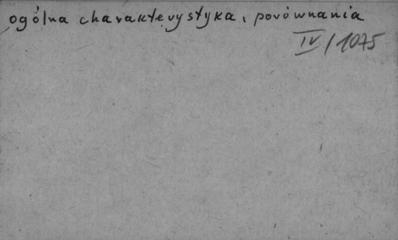 ogólna charakterystyka, porównania
IV/1075